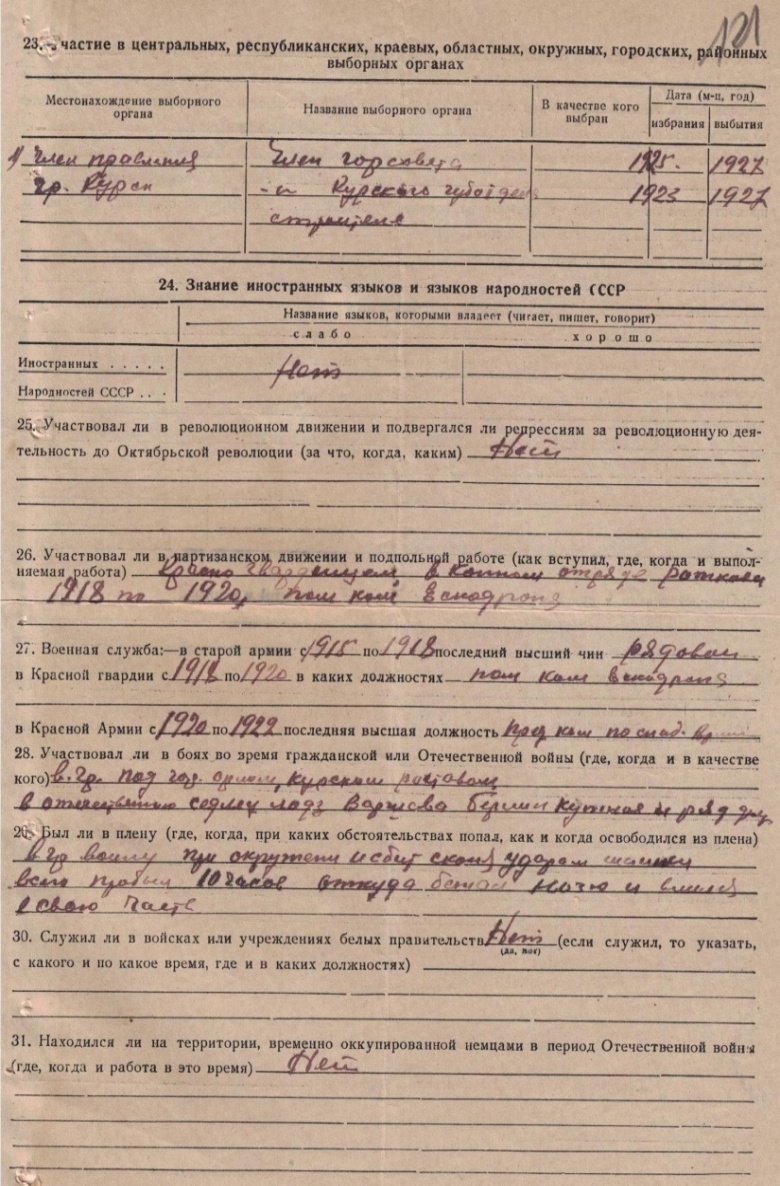 121
23. Участие в центральных, республиканских, краевых, областных, окружных, городских, районных
выборных органах
Местонахождение выборного органа | Название выборного органа | В качестве кого выбран | Дата (м-ц, год)
избрания | выбытия
1) Член правления | Член горсовета | 1925. | 1927
гр. Курск | -"- Курского губотдела | 1923 | 1927
строителе
24. Знание иностранных языков и языков народностей СССР
Название языков, которыми владеет (читает, пишет, говорит)
слабо | хорошо
Иностранных . . . . . | Нет
Народностей СССР . . .
25. Участвовал ли в революционном движении и подвергался ли репрессиям за революционную дея-
тельность до Октябрьской революции (за что, когда, каким) Нет
26. Участвовал ли в партизанском движении и подпольной работе (как вступил, где, когда и выпол-
няемая работа) Красно гвардейцем в конном отряде
1918 по 1920, пом ком Эскодрона
27. Военная служба:—в старой армии с 1915 по 1918 последний высший чин рядовой
в Красной гвардии с 1918 по 1920 в каких должностях пом ком Эскодрона
в Красной Армии с 1920 по 1922 последняя высшая должность пред ком по снаб.
28. Участвовал ли в боях во время гражданской или Отечественной войны (где, когда и в качестве
кого) в. гр. под гор. орлом, Курском ростовом
в отечественую Варшава берлин и ряд др
29. Был ли в плену (где, когда, при каких обстоятельствах попал, как и когда освободился из плена)
в гр войну при окружени и сбит с коня ударом шашки
всего пробыл 10 часов откуда бежал ночю и
в свою часть
30. Служил ли в войсках или учреждениях белых правительств Нет (если служил, то указать,
(да, нет)
с какого и по какое время, где и в каких должностях)
31. Находился ли на территории, временно оккупированной немцами в период Отечественной войны
(где, когда и работа в это время) Нет